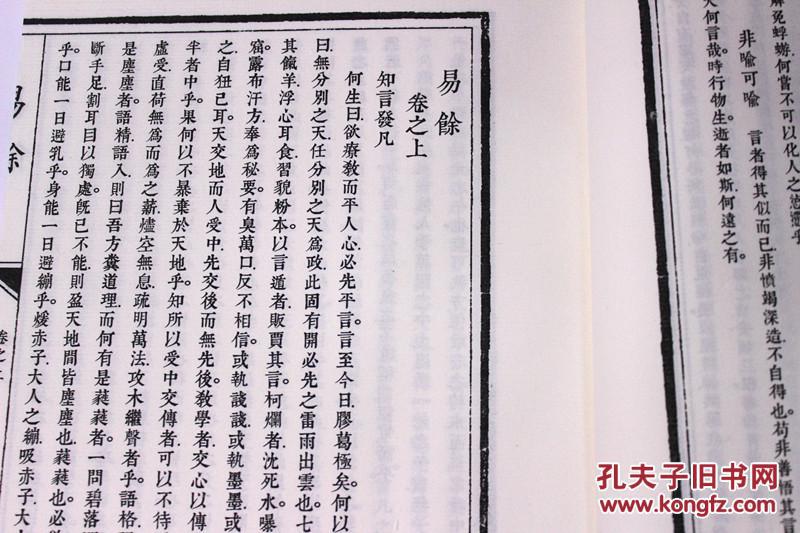 解免蜉蝣何嘗不可以化人之
天何言哉時行物生逝者如斯何遠之有。
非喩可喩
言者得其似而已非憤竭深造不自得也苟非善悟其言
易餘
卷之上
知言發凡
何生曰欲療敎而平人心必先平言言至今日膠葛極矣何以
曰無分別之天任分別之天爲政此固有開必先之雷雨出雲也七
其餼羊浮心耳食習貌粉本以言遁者販賈其言柯爛者沈死水曝
露布汗方奉爲秘要有臭萬口反不相信或執諓諓或執墨墨或
之自狃已耳天交地而人受中先交後而無先後敎學者交心以傳
芈者中乎果何以不暴棄於天地乎知所以受中交傳者可以不待
虛受直荷無爲而爲之薪燼空無息疏明萬法攻木繼聲者乎語格
是塵塵者語精語入則曰吾方糞道理而何有是蕤蕤者一問碧落
斷手足割耳目以獨處旣已不能則盈天地間皆塵塵也蕤蕤也必
乎口能一日避乳乎身能一日避繃乎煖赤子大人之繃吸赤子大
易餘
卷之上
孔夫子旧书网
www.kongfz.com